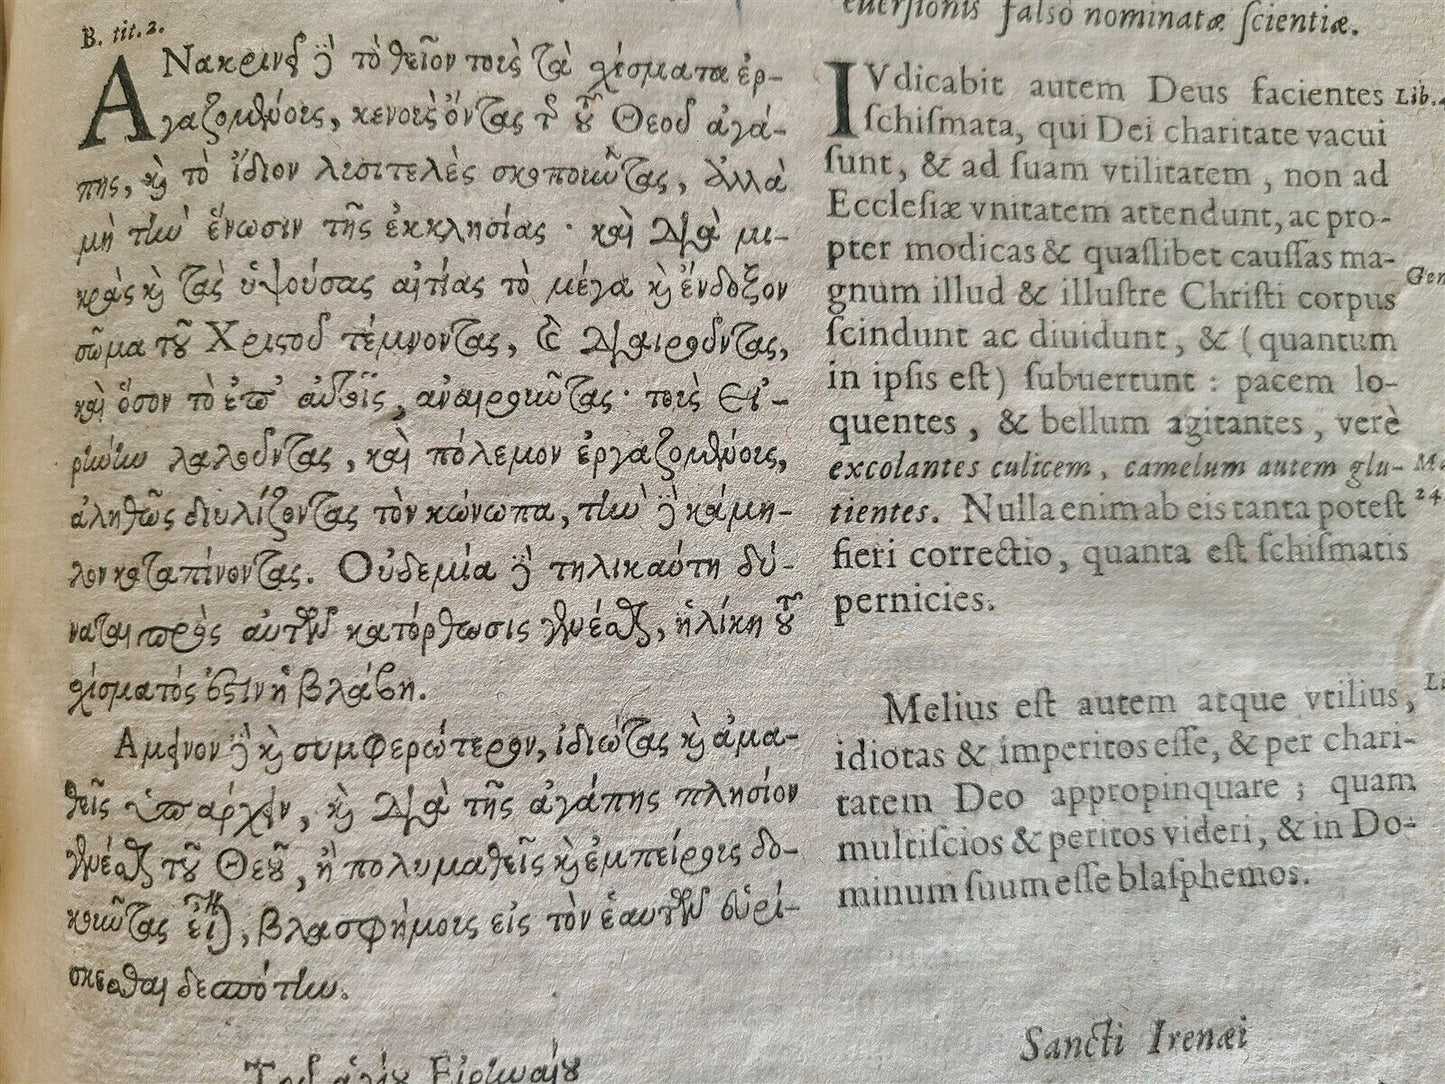 B. tit. 2.
ΑΝακρινεῖ δὲ τὸ θεῖον τοὺς τὰ χίσματα ἐρ-
γαζομένοις, κενοὺς ὄντας τῆς τοῦ Θεοῦ ἀγά-
πης, καὶ τὸ ἴδιον λυσιτελὲς σκοποῦντας, ἀλλὰ
μὴ τὴν ἕνωσιν τῆς ἐκκλησίας · καὶ διὰ μι-
κρὰς καὶ τὰς τὸ μέγα καὶ ἔνδοξον
σῶμα τοῦ Χριστοῦ τέμνοντας, καὶ διαιροῦντας,
καὶ ὅσον τὸ ἐπ' αὐτοῖς, ἀναιροῦντας · τοὺς εἰ-
ρήνην λαλοῦντας, καὶ πόλεμον ἐργαζομένοις,
ἀληθῶς διυλίζοντας τὸν κώνωπα, τὴν δὲ κάμη-
λον καταπίνοντας. Οὐδεμία δὲ τηλικαύτη δύ-
ναται πρὸς αὐτῶν κατόρθωσις γενέσθαι, ἡλίκη τοῦ
χίσματός ἐστιν ἡ βλάβη.
Αμεινον δὲ καὶ συμφερώτερον, ἰδιώτας καὶ ἀμα-
θεῖς ὑπάρχειν, καὶ διὰ τῆς ἀγάπης πλησίον
γενέσθαι τοῦ Θεοῦ, ἢ πολυμαθεῖς καὶ ἐμπείροις δο-
κοῦντας εἶναι, βλασφήμοις εἰς τὸν ἑαυτῶν εὑρί-
σκεσθαι δεσπότην.
Τοῦ ἁγίου Εἰρηναίου
euersionis falsò nominatæ scientiæ.
IVdicabit autem Deus facientes Lib.
schismata, qui Dei charitate vacui
sunt, & ad suam vtilitatem, non ad
Ecclesiæ vnitatem attendunt, ac pro-
pter modicas & quaslibet caussas ma-
gnum illud & illustre Christi corpus
scindunt ac diuidunt, & (quantum
in ipsis est) subuertunt: pacem lo-
quentes, & bellum agitantes, verè
excolantes culicem, camelum autem glu-
tientes. Nulla enim ab eis tanta potest 24
fieri correctio, quanta est schismatis
pernicies.
Melius est autem atque vtilius,
idiotas & imperitos esse, & per chari-
tatem Deo appropinquare; quam
multiscios & peritos videri, & in Do-
minum suum esse blasphemos.
Sancti Irenæi